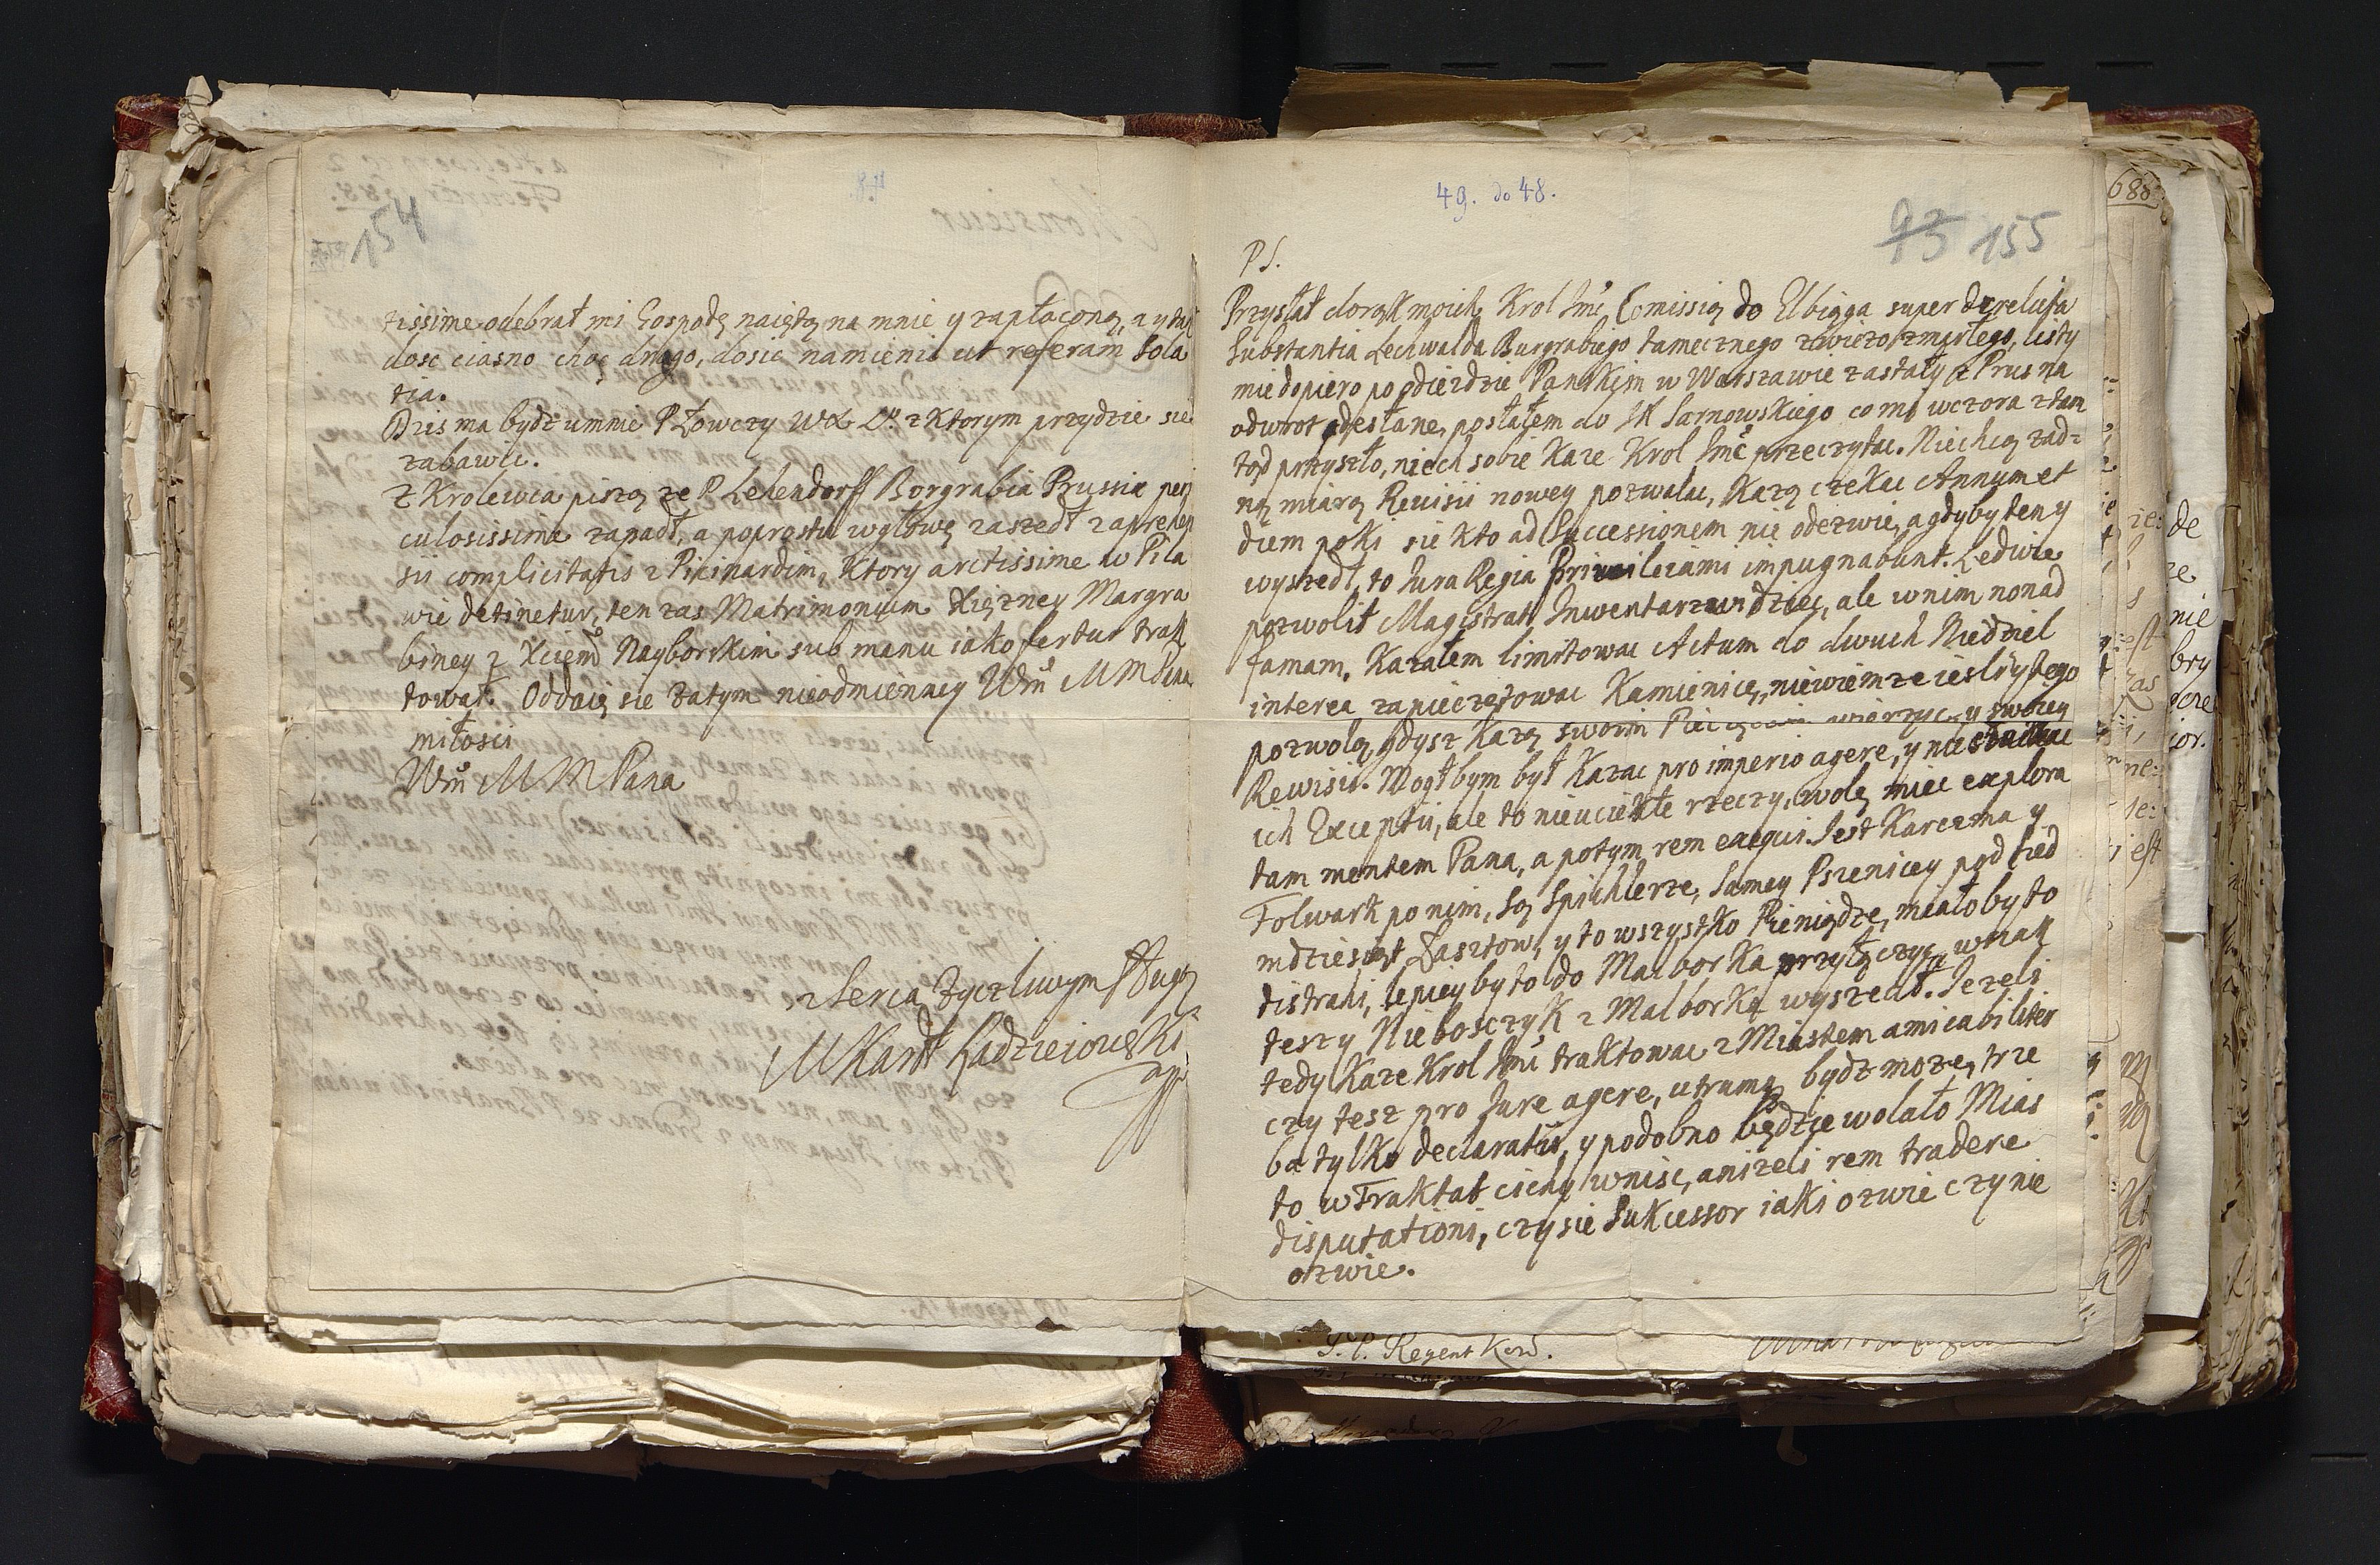 154
tissime odebrał mi Gospodę naiętą na mnie y zapłaconą, a y tu
dosc ciasno choc drogo, dosic namienic ut referam Sola
tia.
Dzis ma bydz u mnie P Łowczy WX L. z Ktorym przydzie sie
zabawic.
Z Krolewca piszą ze P Lehendorff Borgrabia Prussiæ peri
culosissime zapadł, a poprostu w głowę zaszedł z aprehen
sii complicitatis z Picinardim, Ktory arctissime w Pila
wie detinetur, ten zas Matrimonium Xięzney Margra
biney z Xciem Nayborskim sub manu iako fertur trak
tował. Oddaię sie zatym nieodmienney Wm MM Pana
miłosci
Wm M M Pana
z Serca zyczliwym Sługą
M Kardł Radzieiowski
mp
49. do 48.
93 155
PS.
Przysłał do rąk moich Krol Jmć Comissią do Elbiąga super derelicta
Substantia Lechwalda Burgrabiego tamecznego swiezo zmarłego, listy
mie dopiero po odieizdzie Pańskim w Warszawie zastały z Prus na
odwrot odesłane, posłałem do JX Sarnowskiego co mi wczora ztam
tąd przyszło, niech sobie Kaze Krol Jmć przeczytac. Niechcą zad-
ną miarą Reuisii nowey pozwalac, Kazą czekac Annum et
diem poki sie kto ad Successionem nie odezwie, a gdyby ten y
wyszedł, to Jura Regia Priuuileiami impugnabunt. Ledwie
pozwolił Magistrat Inwentarz widziec, ale w nim non ad
famam. Kazałem limitowac Actum do dwuch Niedziel
interea zapieczętowac Kamienicę, niewiem ze iesli y tego
pozwolą, gdysz Kazą swoim Pieczęciom wierzyc y swoiey
Rewisii. Mogłbym był Kazac pro imperio agere, y nie słuchac
ich Exceptii, ale to nieuciekłe rzeczy, wolę miec explora
tam mentem Pana, a potym rem exequi. Jest Karczma y
Folwark po nim, Są Spichlerze, Samey Pszenicey pod Sied
mdziesiąt Łasztow, y to wszystko Pieniądze, miałoby to
distrahi, lepiey by to do Malborka przyłączyc, w trak
tesz y Nieboszczyk z Malborka wyszedł. Jezeli
tedy Kaze Krol Jmć traktowac z Miastem amicabiliter
czy tesz pro Jure agere, utrumq bydz moze, trze
ba tylko declaratii, y podobno będzie wolało Mias
to w Traktat cichy wnisc, anizeli rem tradere
disputationi, czy sie Sukcessor iaki ozwie czy nie
ozwie.
J. P. Regent Kor.
688